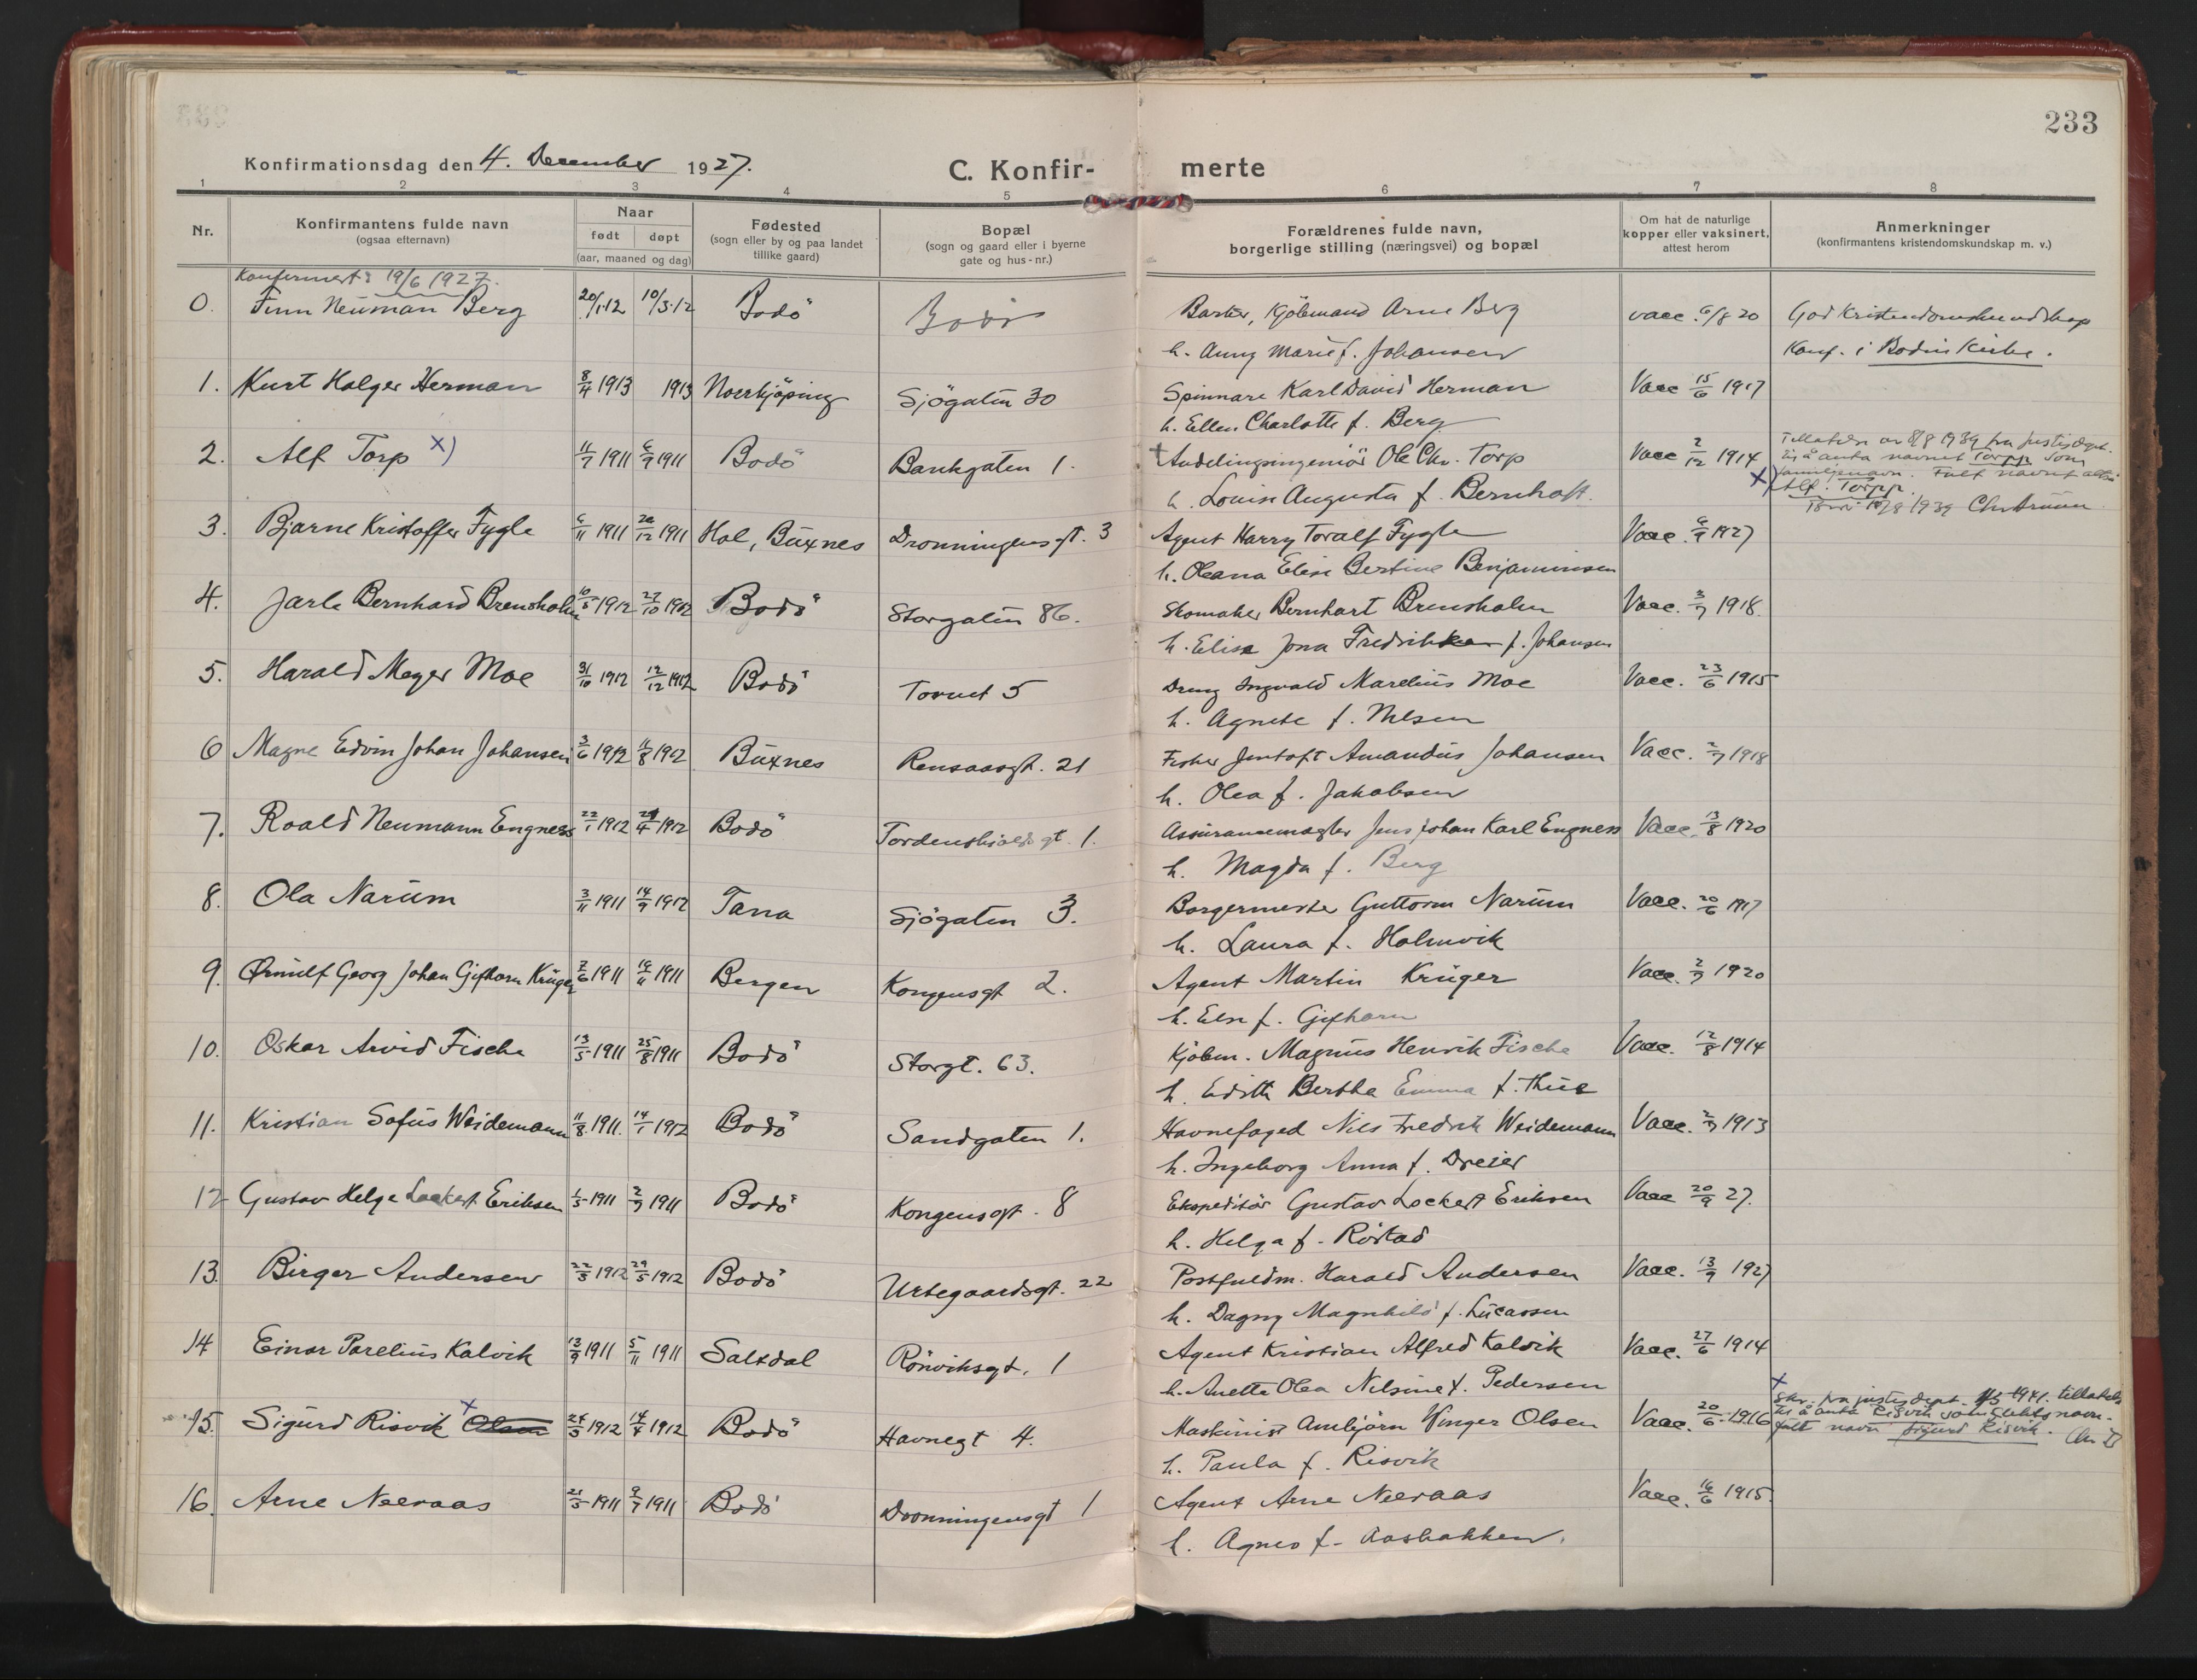 233
Konfirmationsdag den 4. December 1927.
C. Konfir-
merte
1 2 3 4 5 6 7 8
Nr.
Konfirmantens fulde navn
(ogsaa efternavn)
Naar
født døpt
(aar, maaned og dag)
Fødested
(sogn eller by og paa landet
tillike gaard)
Bopæl
(sogn og gaard eller i byerne
gate og hus-nr.)
Forældrenes fulde navn,
borgerlige stilling (næringsvei) og bopæl
Om hat de naturlige
kopper eller vaksinert,
attest herom
Anmerkninger
(konfirmantens kristendomskundskap m. v.)
Konfirmert: 19/6 1927.
0. Finn Neuman Berg 20/1.12 10/3.12 Bodö Bodö Barber, Kjöbmand Arne Berg vacc. 6/8 20 God Kristendomskundskap
h. Anny Marie f. Johansen Konf. i Bodin Kirke.
1. Kurt Holger Herman 8/4 1913 1913 Norrkjöping Sjögaten 30 Spinnare Karl David Herman Vacc 15/6 1917
h. Ellen Charlotte f. Berg
2. Alf Torp x) 11/7 1911 6/9 1911 Bodö Bankgaten 1. Avdelingsingeniör Ole Chr. Torp Vacc 2/12 1914 Tillatelse av 8/8 1939 fra justisdept.
til å anta navnet Torpp som
x) familienavn. Fullt navn altså
h. Louise Augusta f. Bernhoft. Alf Torpp.
Bodö 18/8 1939
3. Bjarne Kristoffer Fygle 6/11 1911 26/12 1911 Hol, Buxnes Dronningensgt. 3 Agent Harry Toralf Fygle Vacc. 6/9 1927
h. Oleana Elise Bertine Benjaminsen
4. Jarle Bernhard Brensholm 10/5 1912 27/10 1912 Bodö Storgaten 86. Skomaker Bernhart Brensholm Vacc. 3/7 1918.
h. Elise Jona Fredrikke f. Johansen
5. Harald Meyer Moe 31/10 1912 12/12 1912 Bodö Torvet 5 Ingvald Marelius Moe Vacc. 23/6 1915
h. Agnete f. Nilsen
6 Magne Edvin Johan Johansen 3/6 1912 11/8 1912 Buxnes Rensaasgt. 21 Fisker Jentoft Amandus Johansen Vacc. 2/7 1918
h. Olea f. Jakobsen
7. Roald Neumann Engness 22/1 1912 24/4 1912 Bodö Tordenskioldsgt. 1. Assurancemægler Jens Johan Karl Engness Vacc. 13/8 1920
h. Magda f. Berg
8. Ola Narum 3/11 1911 14/9 1912 Tana Sjögaten 3. Borgermester Guttorm Narum Vacc. 20/6 1917
h. Laura f. Holmvik
9. Ørnulf Georg Johan Gifhorn Krüger 7/6 1911 19/11 1911 Bergen Kongensgt 2. Agent Martin Krüger Vacc. 2/7 1920
h. Else f. Gifhorn
10. Oskar Arvid Fische 13/5 1911 25/8 1911 Bodö Storgt. 63. Kjöbm. Magnus Henrik Fische Vacc. 12/8 1914
h. Edith Berthe Emma f. Thue
11. Kristian Sofus Weidemann 11/8 1911. 14/1 1912 Bodö Sandgaten 1. Havnefoged Nils Fredrik Weidemann Vacc. 2/7 1913
h. Ingeborg Anna f. Dreier
12 Gustav Helge Lockert Eriksen 1/5 1911 2/7 1911 Bodö Kongensgt. 8 Ekspeditör Gustav Lockert Eriksen Vacc 20/9 27.
h. Helga f. Röstad
13. Birger Andersen 22/3 1912 29/5 1912 Bodö Urtegaardsgt. 22 Postfuldm. Harald Andersen Vacc. 13/9 1927
h. Dagny Magnhild f. Lucassen
14 Einar Parelius Kalvik 13/9 1911 5/11 1911 Saltdal Rönviksgt. 1 Agent Kristian Alfred Kalvik Vacc. 27/6 1914
h. Anette Olea Nilsine f. Pedersen
15. Sigurd Risvik x Olsen 24/3 1912 14/4 1912 Bodö Havnegt 4. Maskinist Arnbjörn Winger Olsen Vacc. 20/6 1916 x Skr. fra justisdept. 1941. tillatelse
til å anta Risvik som slektsnavn.
fullt navn Sigurd Risvik.
h. Paula f. Risvik
16. Arne Neeraas 21/5 1911 9/7 1911 Bodö Dronningensgt 1 Agent Arne Neeraas Vacc. 16/6 1915.
h. Agnes f. Aasbakken.